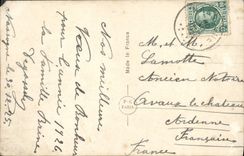 Nos meilleurs
Vœux de Bonheur
pour l'année 1926
La Famille
30.12.25
Made in France
M. et M.
Lamotte
Ancien Notaire
Avaux le chateau
Ardenne
Française
France